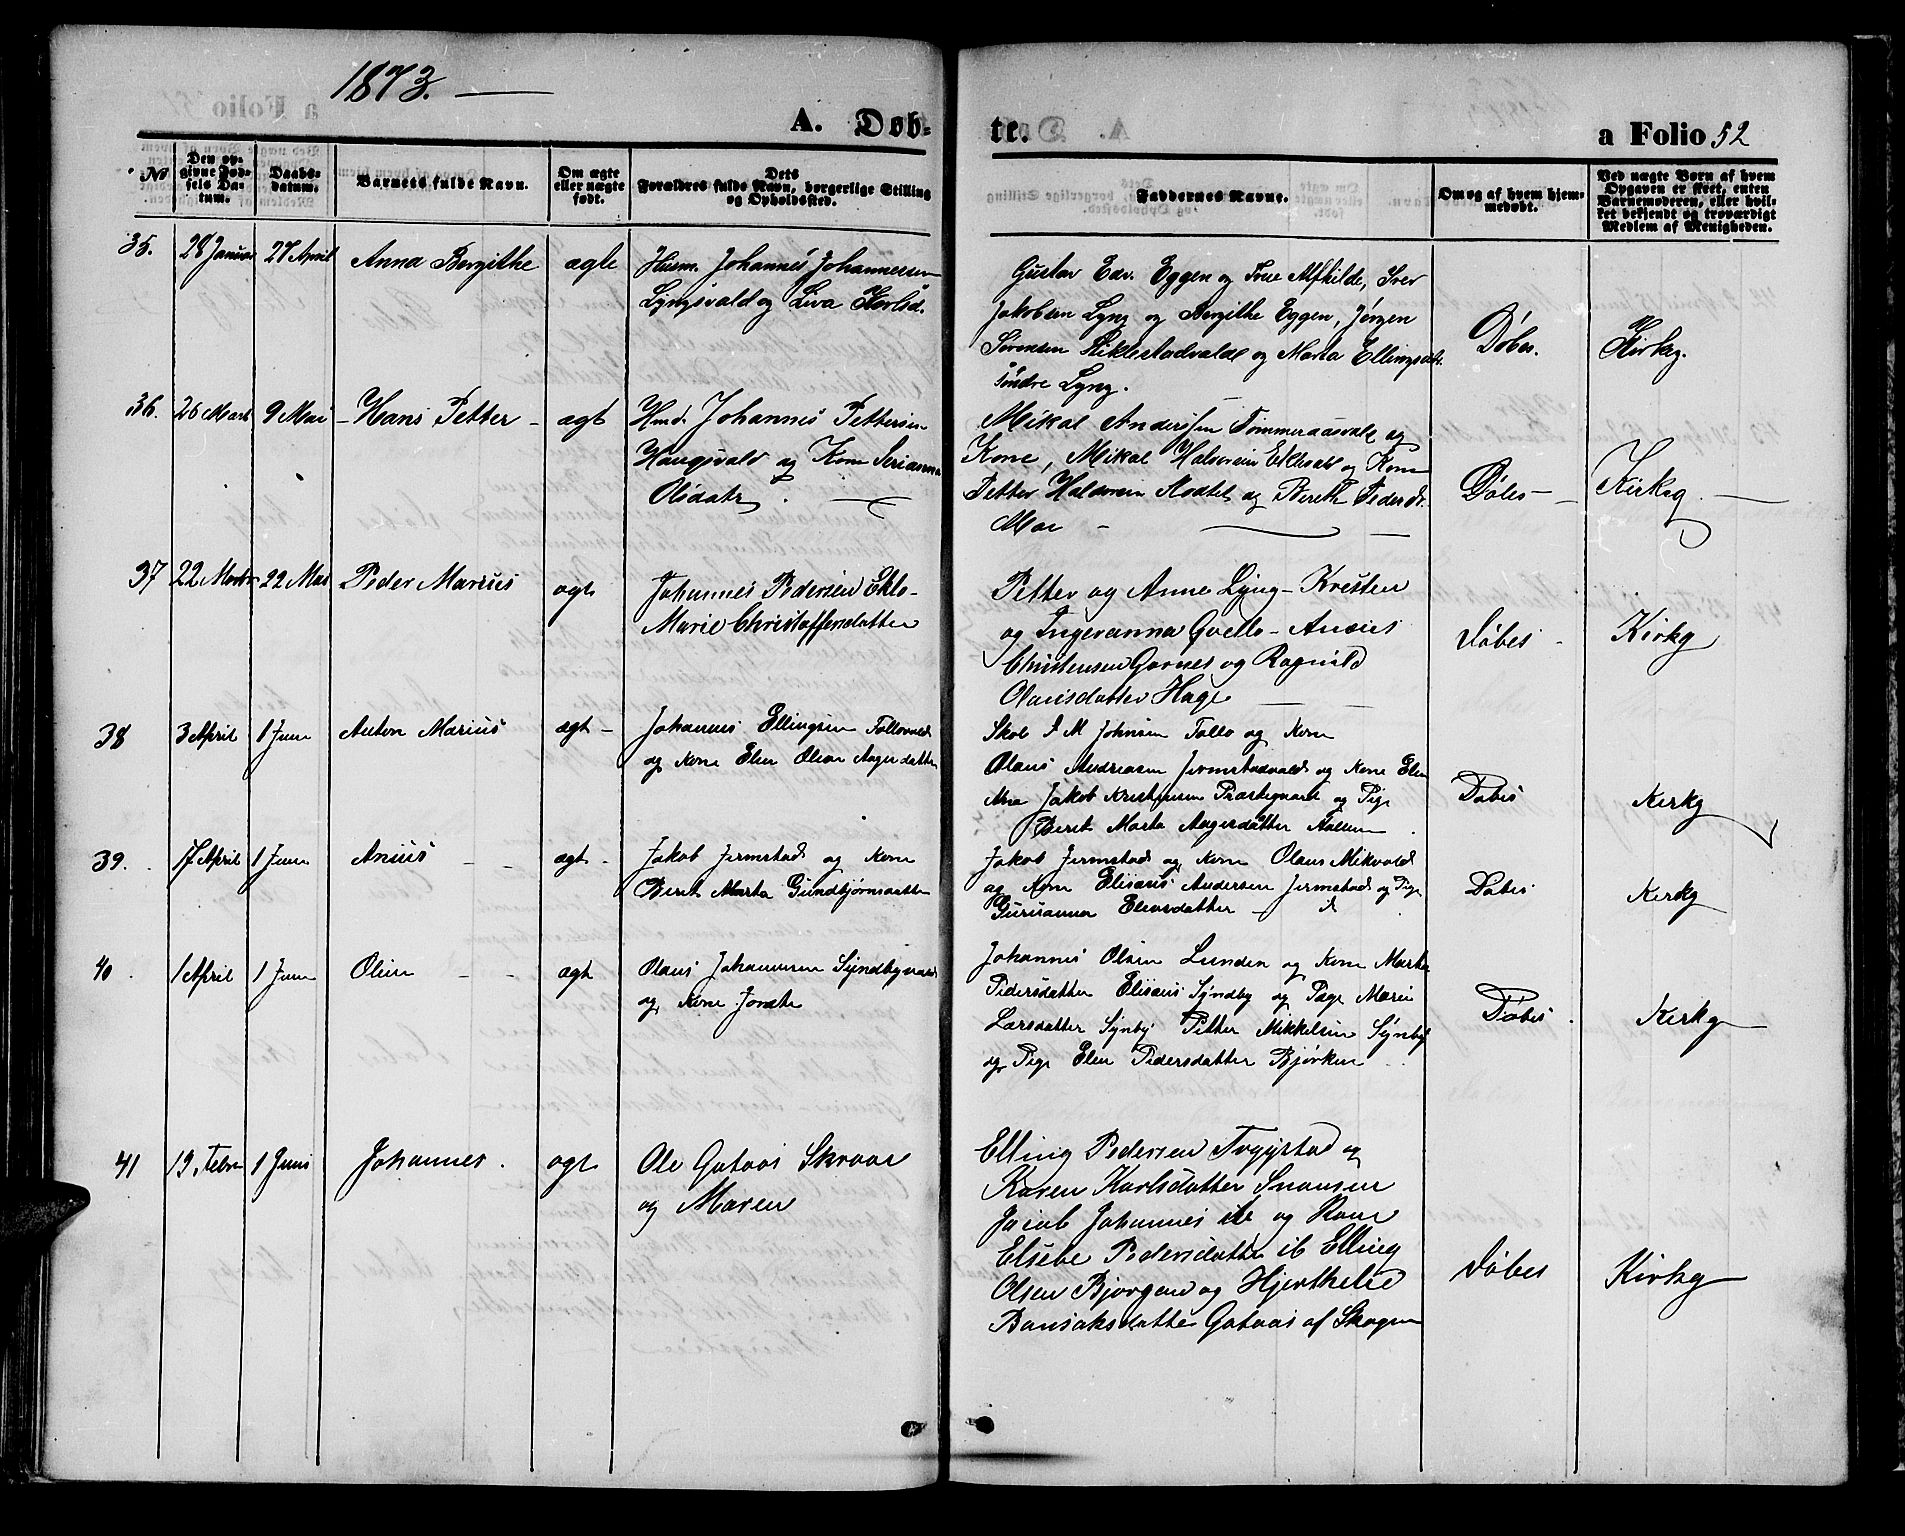 1873.
A. Døb-
te.
a Folio 52
No
Den op-
givne Fød-
sels Da-
tum.
Daabs-
datum.
Barnets fulde Navn.
Om ægte
eller uægte
født.
Dets
Forældres fulde Navn, borgerlige Stilling
og Opholdssted.
Faddernes Navne.
Om og af hvem hjem-
medøbt.
Ved uægte Børn af hvem
Opgaven er skeet, enten
Barnemoderen, eller hvil-
ket bekjendt og troværdigt
Medlem af Menigheden.
35. 28 Januar 27 April Anna Bergithe ægte
Husm. Johannes Johannessen
Lyngsvald og Liva Karlsd.
Gustav Edv. Eggen og Frue Alfhilde, Iver
Jakobsen Lyng og Bergithe Eggen, Jørgen
Sørensen Stiklestadvald og Marta Ellingsdt.
søndre Lyng.
Døbes. Kirkg.
36. 26 Marts 9 Mai - Hans Petter - ægt
Hmd. Johannes Pettersen
Haugsvald og Kone Serianna
Olsdatr.
Mikal Anderssen Tømmeraasvald og
Kone, Mikal Halvorsen Eklesald og Kone
Petter Haldorsen Rodtel og Bereth Pedersd.
Moe -
Døbes - Kirkeg.
37 22 Marts 22 Mai Peder Marius ægte
Johannes Pedersen Eklo-
Marie Christoffersdatter
Petter og Anne Lyng - Kresten
og Ingeranna Qvello - Ansius
Christensen Garnes og Ragnild
Olausdatter Hage
Døbes - Kirkg
38 3 April 1 Juni Anton Marius ægt -
Johannes Ellingsen Follovald
og Kone Elen Oline Aagesdatter
Skol I M Johnsen Follo og Kone
Olaus Andreasen Jermstadvald og Kone Elen
Ane Jakob Kristensen Præstegaard og Pige
Beret Marta Aagesdatter Aaksen
Døbes Kirkg
39. 17 April 1 Juni Anius ægt -
Jakob Jermstad og Kone
Beret Marta Gundbjørnsdatter
Jakob Jermstad og Kone Olaus Mikvold
og Kone Elisæus Andersen Jermstad og Pige
Gurianna Elensdatter - d
Døbes Kirkg
40 1 April 1 Juni Oline - - ægt
Olaus Johannesen Syndbyvald
og Kone Jonete
Johannes Olsen Lunden og Kone Marta
Pedersdatter Elisæus Syndby og Pige Marie
Larsdatter Synby Petter Mikkelsen Synby
og Pige Elen Pedersdatter Bjørken
Døbes. Kirkg
41 19. Febr 1 Juni Johannes. ægte
Ole Gataas Skraar
og Maren
Elling Pedersen Trygstad og
Karen Karlsdatter Snausen
Jacob Johannes ib og Kone
Elsebe Pedersdatter ib Elling
Olsen Bjørgen og Hjerthelie
Bansaksdatter Gataas af Skogn
Døbes Kirkg